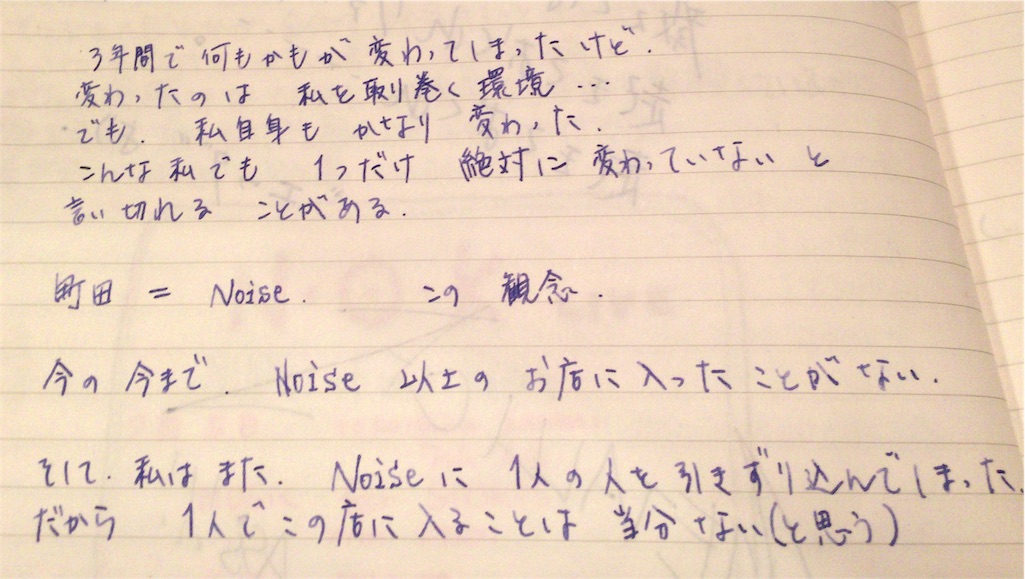 3年間で何もかもが変わってしまったけど.
変わったのは 私を取り巻く環境…
でも. 私自身も かなり 変わった.
こんな私でも 1つだけ 絶対に変わっていない と
言い切れる ことがある.
町田 = Noise. この 観念.
今の今まで. Noise 以上の お店に入ったことがない.
そして. 私はまた. Noiseに 1人の人を引きずり込んでしまった.
だから 1人でこの店に入ることは 当分ない(と思う)